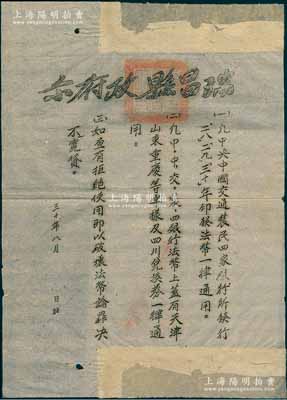 上海陽明拍賣
瑞昌縣政府示
(一)凡中央中國交通農民四家銀行所發行
二八、二九、三十年印發法幣一律通用。
(二)凡中、中、交、農、四銀行法幣上蓋有天津
山東重慶等字樣及四川兌換券一律通
用。
(三)如查有拒絕使用即以破壞法幣論罪決
不寬貸。
三十年八月 日
上海陽明拍賣